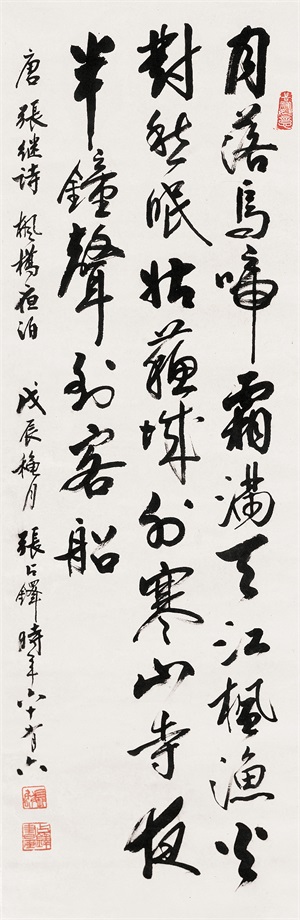 月落烏啼霜滿天江楓漁火
對愁眠姑蘇城外寒山寺夜
半鐘聲到客船
唐張继詩 楓橋夜泊 戊辰穐月 張占鐸時年六十有六